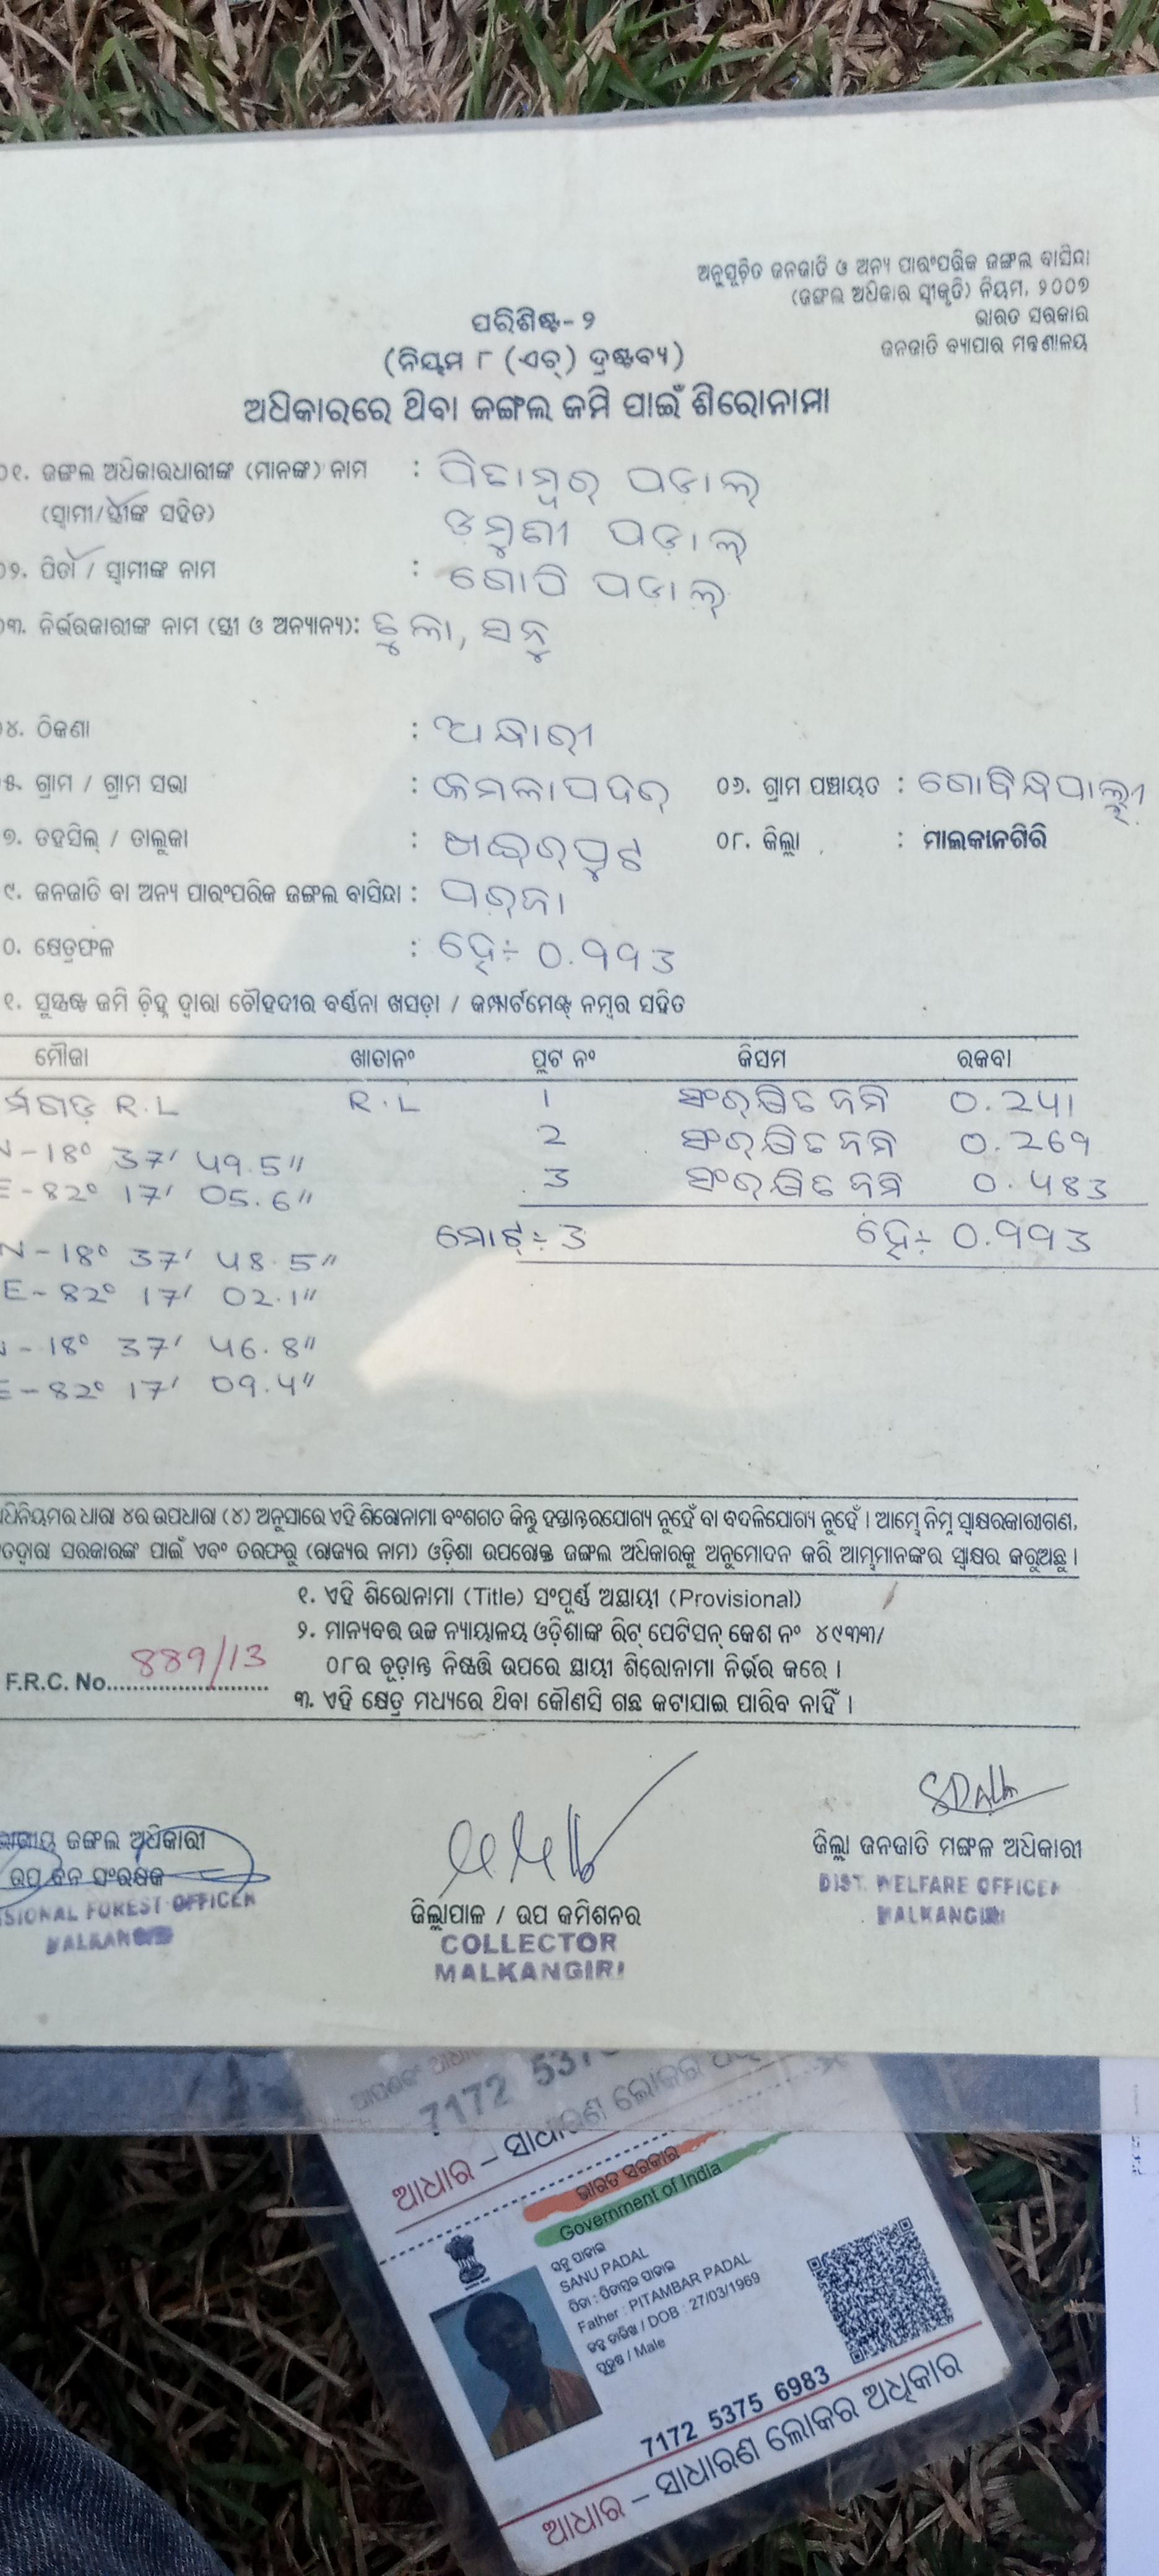 ଅନୁସୂଚିତ ଜନଜାତି ଓ ଅନ୍ୟ ପାରଂପରିକ ଜଙ୍ଗଲ ବାସିନ୍ଦା
(ଜଙ୍ଗଲ ଅଧିକାର ସ୍ୱୀକୃତି) ନିୟମ, ୨୦୦୭
ଭାରତ ସରକାର
ଜନଜାତି ବ୍ୟାପାର ମନ୍ତ୍ରଣାଳୟ
ପରିଶିଷ୍ଟ-୨
(ନିୟମ ୮ (ଏଚ୍) ଦ୍ରଷ୍ଟବ୍ୟ)
ଅଧିକାରରେ ଥିବା ଜଙ୍ଗଲ ଜମି ପାଇଁ ଶିରୋନାମା
୦୧. ଜଙ୍ଗଲ ଅଧିକାରଧାରୀଙ୍କ (ମାନଙ୍କ) ନାମ : ପିତାମ୍ବର୍ ପଡାଲ୍
(ସ୍ୱାମୀ/ସ୍ତ୍ରୀଙ୍କ ସହିତ) ଡମୁଣୀ ପଡ଼ାଲ୍
୦୨. ପିତା / ସ୍ୱାମୀଙ୍କ ନାମ : ଗୋପି ପଡାଲ୍
୦୩. ନିର୍ଭରକାରୀଙ୍କ ନାମ (ସ୍ତ୍ରୀ ଓ ଅନ୍ୟାନ୍ୟ): ତୁଳା, ସନୁ
୦୪. ଠିକଣା : ଅନ୍ଧାରୀ
୫. ଗ୍ରାମ / ଗ୍ରାମ ସଭା : କମଳାପଦର୍ ୦୬. ଗ୍ରାମ ପଞ୍ଚାୟତ : ଗୋବିନ୍ଧପାଲ୍ଲୀ
୭. ତହସିଲ୍ / ତାଲୁକା : ଖଇରପୁଟ ୦୮. ଜିଲ୍ଲା : ମାଲକାନଗିରି
୯. ଜନଜାତି ବା ଅନ୍ୟ ପାରଂପରିକ ଜଙ୍ଗଲ ବାସିନ୍ଦା : ପର୍‌ଜା
୦. କ୍ଷେତ୍ରଫଳ : ହେ÷ ୦.୩୩୨
୧. ସୁସ୍ପଷ୍ଟ ଜମି ଚିହ୍ନ ଦ୍ୱାରା ଚୌହଦୀର ବର୍ଣ୍ଣନା ଖସଡ଼ା / କମ୍ପାର୍ଟମେଣ୍ଟ ନମ୍ବର ସହିତ
ମୌଜା ଖାତାନଂ ପ୍ଲଟ ନଂ କିସମ ରକବା
R.L R.L 1 ସଂରକ୍ଷିତ ଜମି 0.241
N-18° 37' 49.5" 2 ସଂରକ୍ଷିତ ଜମି 0.269
E-82° 17' 05.6" 3 ସଂରକ୍ଷିତ ଜମି 0.483
ମୋଟ୍÷ 3 ହେ÷ 0.993
N-18° 37' 48.5"
E-82° 17' 02.1"
N-18° 37' 46.8"
E-82° 17' 09.4"
ଧିନିୟମର ଧାରା ୪ର ଉପଧାରା (୪) ଅନୁସାରେ ଏହି ଶିରୋନାମା ବଂଶଗତ କିନ୍ତୁ ହସ୍ତାନ୍ତରଯୋଗ୍ୟ ନୁହେଁ ବା ବଦଳିଯୋଗ୍ୟ ନୁହେଁ । ଆମ୍ଭେ ନିମ୍ନ ସ୍ୱାକ୍ଷରକାରୀଗଣ,
ତଦ୍ୱାରା ସରକାରଙ୍କ ପାଇଁ ଏବଂ ତରଫରୁ (ରାଜ୍ୟର ନାମ) ଓଡ଼ିଶା ଉପରୋକ୍ତ ଜଙ୍ଗଲ ଅଧିକାରକୁ ଅନୁମୋଦନ କରି ଆମ୍ଭମାନଙ୍କର ସ୍ୱାକ୍ଷର କରୁଅଛୁ ।
୧. ଏହି ଶିରୋନାମା (Title) ସଂପୂର୍ଣ୍ଣ ଅସ୍ଥାୟୀ (Provisional)
୨. ମାନ୍ୟବର ଉଚ୍ଚ ନ୍ୟାୟାଳୟ ଓଡ଼ିଶାଙ୍କ ରିଟ୍ ପେଟିସନ୍ କେଶ ନଂ ୪୯୩୩/
୦୮ର ଚୂଡ଼ାନ୍ତ ନିଷ୍ପତ୍ତି ଉପରେ ସ୍ଥାୟୀ ଶିରୋନାମା ନିର୍ଭର କରେ ।
F.R.C. No. 889/13
୩. ଏହି କ୍ଷେତ୍ର ମଧ୍ୟରେ ଥିବା କୌଣସି ଗଛ କଟାଯାଇ ପାରିବ ନାହିଁ ।
ଜଙ୍ଗଲ ଅଧିକାରୀ
ଉପ ବନ ସଂରକ୍ଷକ
SIONAL FOREST OFFICER
MALKANGIRI
ଜିଲ୍ଲାପାଳ / ଉପ କମିଶନର
COLLECTOR
MALKANGIRI
ଜିଲ୍ଲା ଜନଜାତି ମଙ୍ଗଳ ଅଧିକାରୀ
DIST. WELFARE OFFICER
MALKANGIRI
7172 537
ଆଧାର – ସାଧାରଣ ଲୋକର
ଭାରତ ସରକାର
Government of India
ସନୁ ପାଡାଲ
SANU PADAL
ପିତା : ପିତାମ୍ବର ପାଡାଲ
Father : PITAMBAR PADAL
ଜନ୍ମ ତାରିଖ / DOB : 27/03/1969
ପୁରୁଷ / Male
7172 5375 6983
ଆଧାର – ସାଧାରଣ ଲୋକର ଅଧିକାର